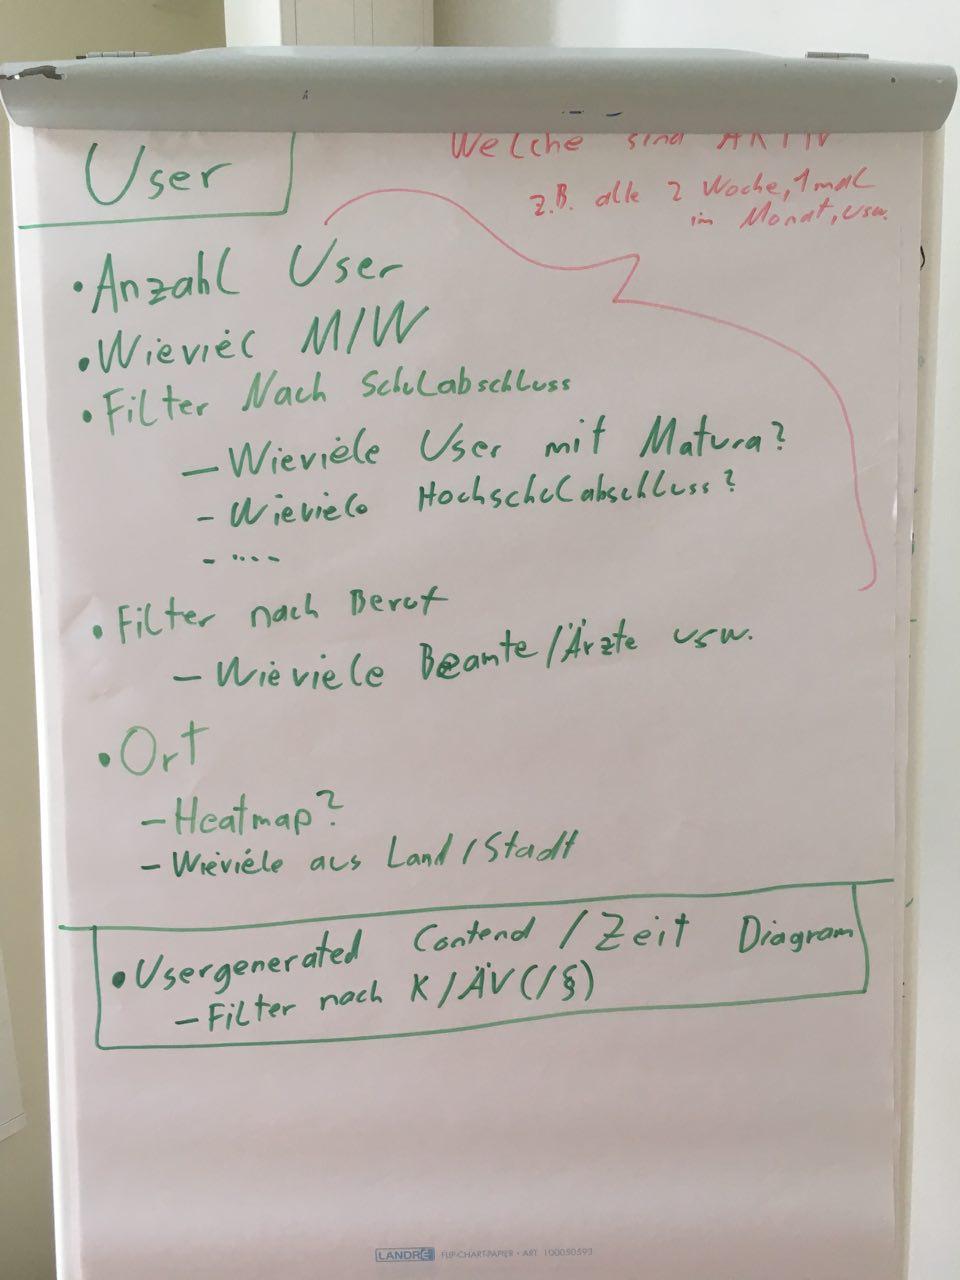 User
Welche sind AKTIV
z.B. alle 2 Woche, 1 mal
im Monat, usw.
• Anzahl User
• Wieviel M/W
• Filter Nach Schulabschluss
– Wieviele User mit Matura?
– Wieviele Hochschulabschluss?
– ....
• Filter nach Beruf
– Wieviele Beamte/Ärzte usw.
• Ort
– Heatmap?
– Wieviele aus Land/Stadt
• Usergenerated Contend / Zeit Diagram
– Filter nach K/ÄV(/§)
LANDRÉ FLIP-CHART-PAPIER • ART. 100050593